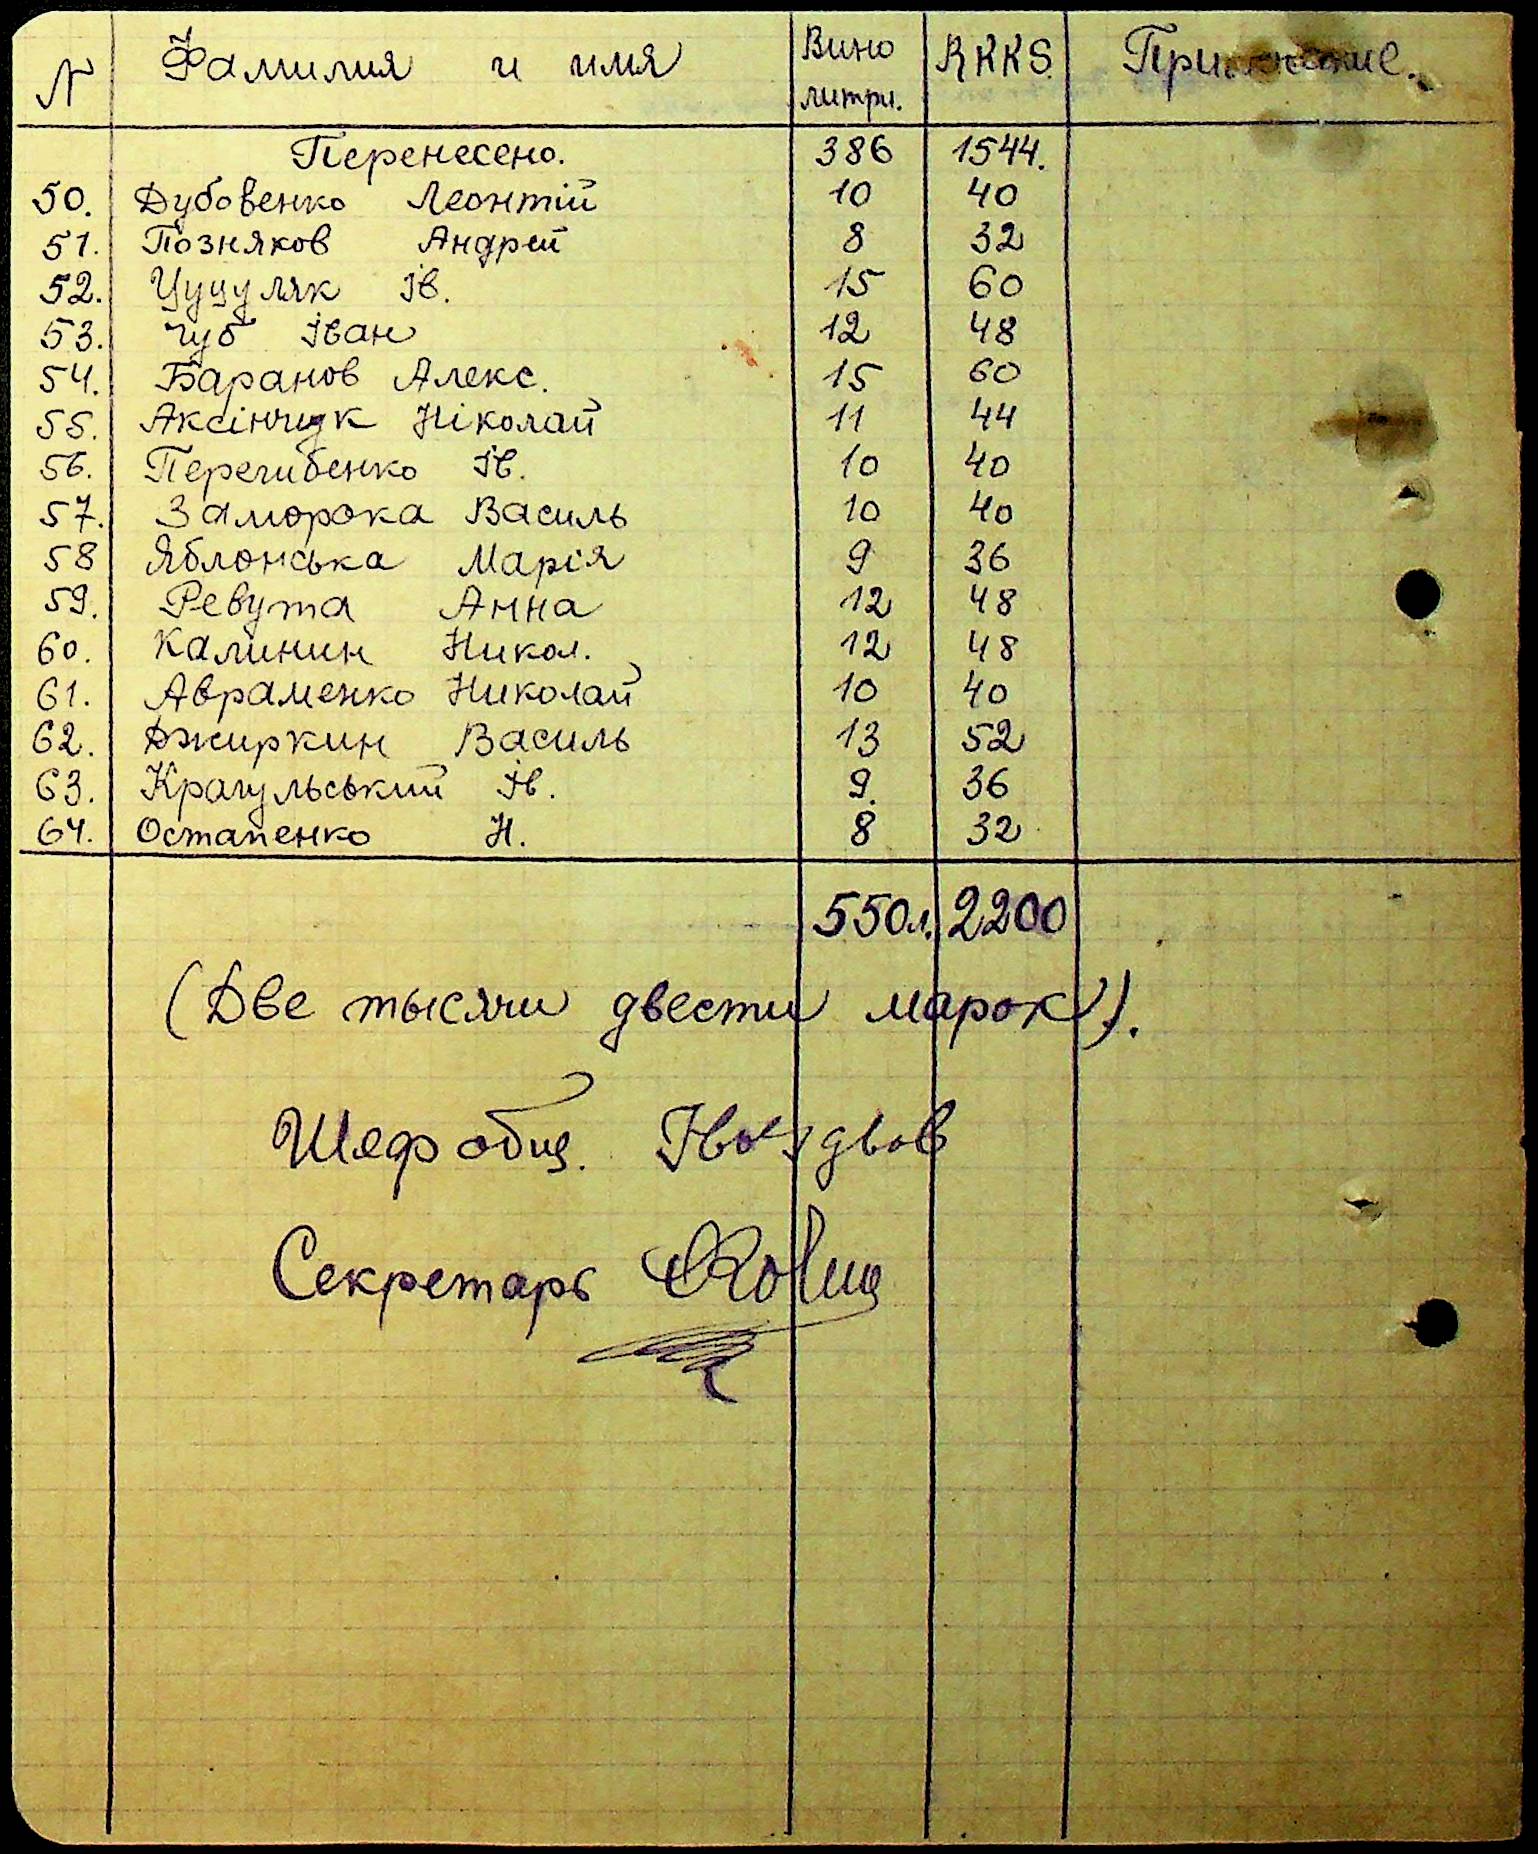 N Фамилия и имя Вино литры. RKKS. Примечание.
Перенесено. 386 1544.
50. Дубовенко Леонтій 10 40
51. Позняков Андрей 8 32
52. Цуцуляк Ів. 15 60
53. Чуб Іван 12 48
54. Баранов Алекс. 15 60
55. Аксінчук Ніколай 11 44
56. Перегибенко Ів. 10 40
57. Заморока Василь 10 40
58 Яблонська Марія 9 36
59. Ревута Анна 12 48
60. Калинин Никол. 12 48
61. Авраменко Николай 10 40
62. Джиркин Василь 13 52
63. Крагульський Ів. 9. 36
64. Остапенко Н. 8 32
550л. 2200
(Две тысячи двести марок).
Шеф общ. Гвоздьов
Секретарь